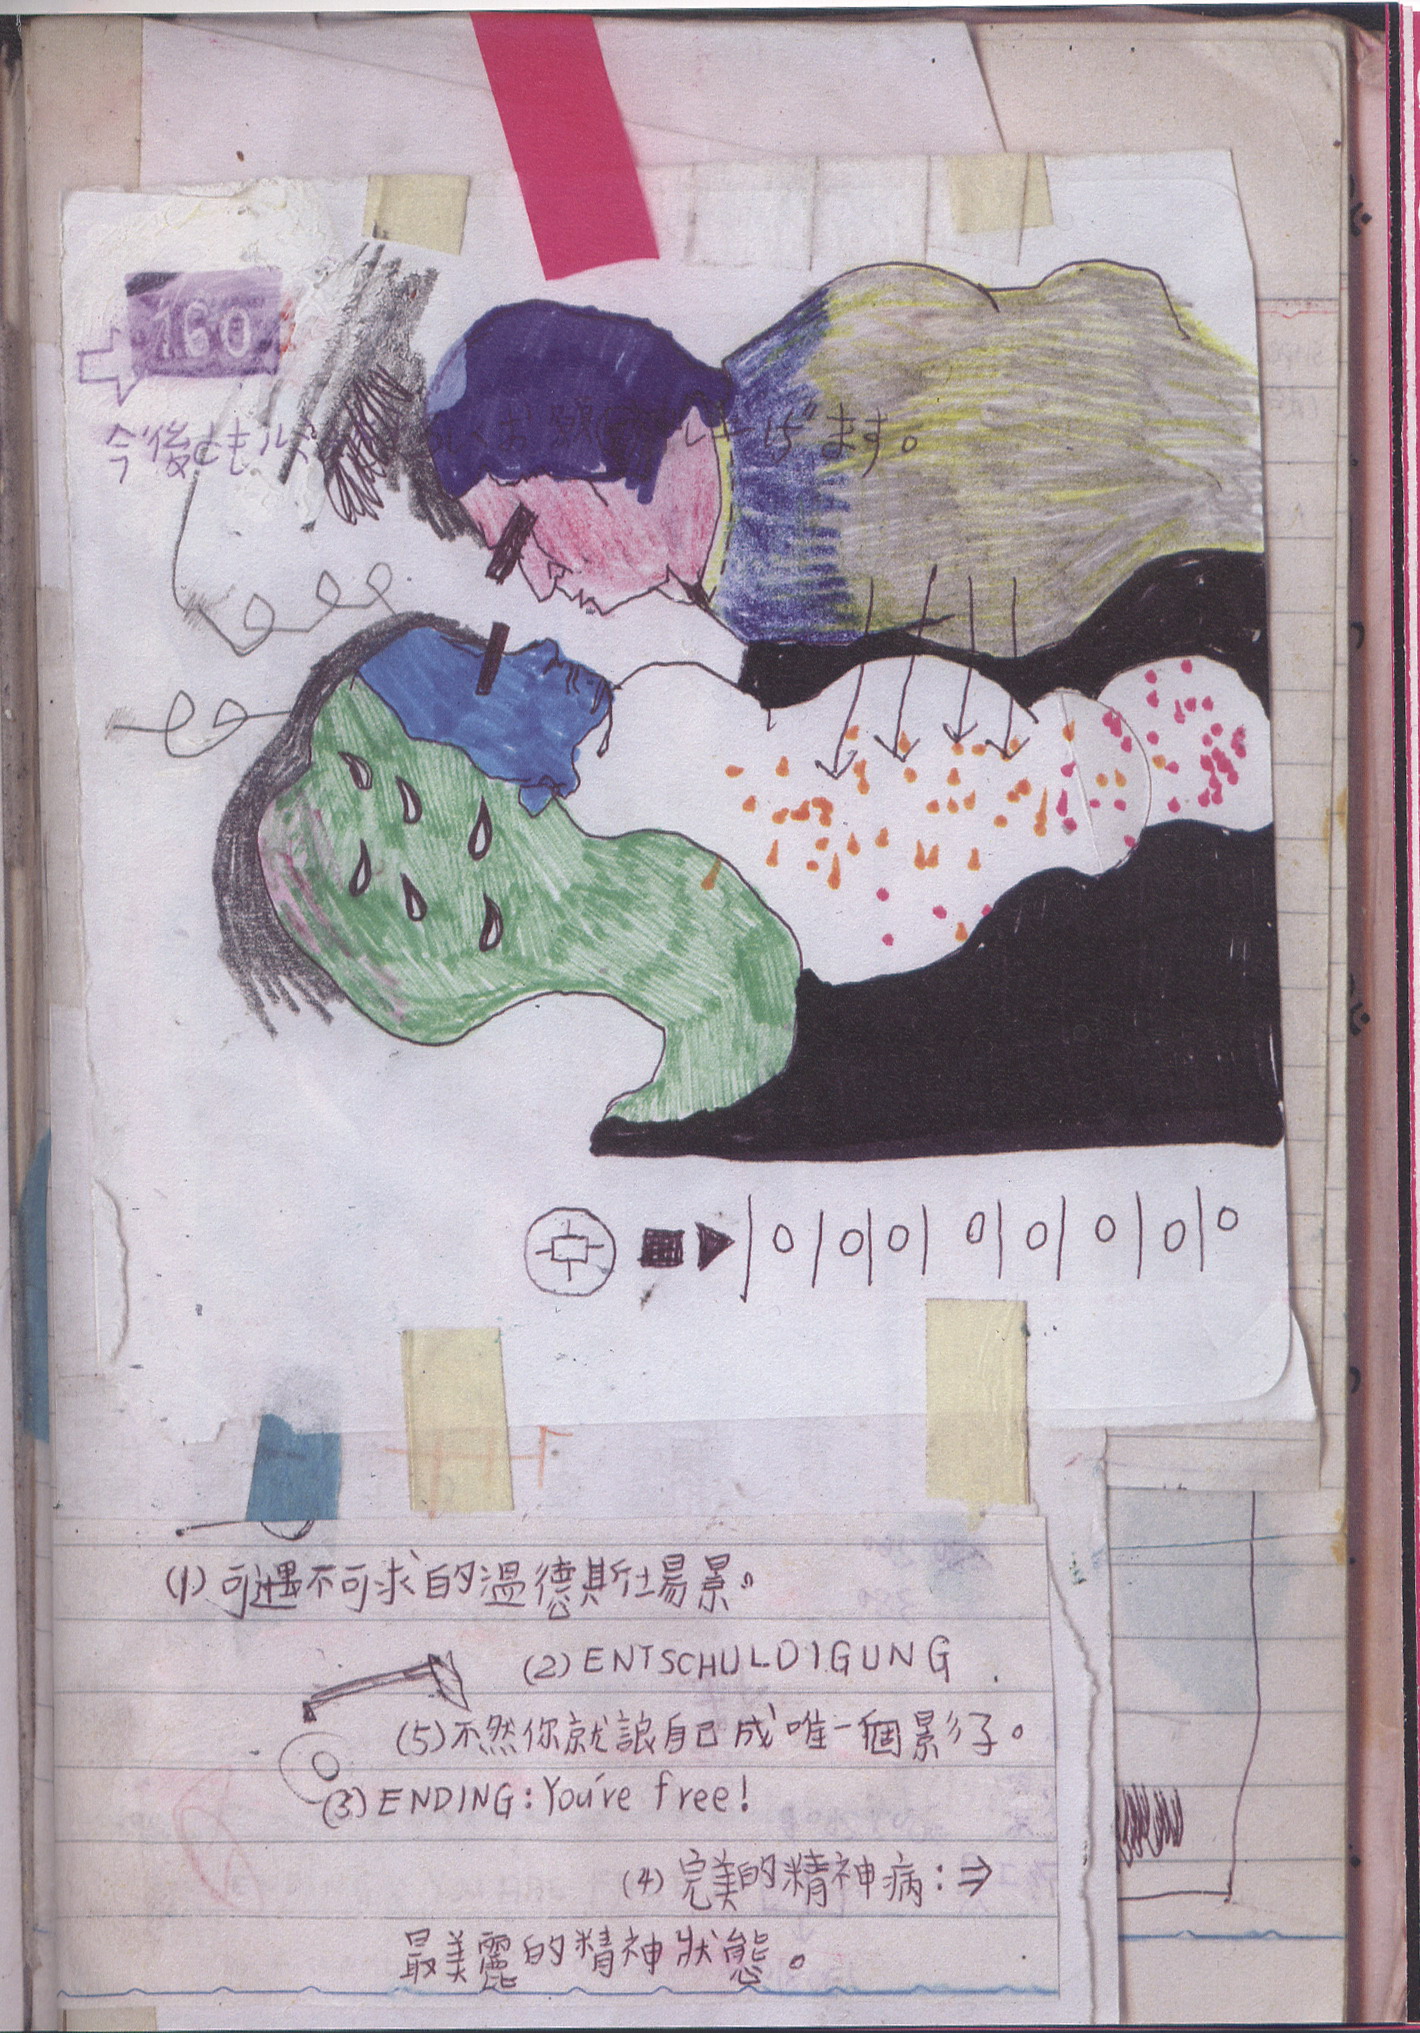 160
今後とも
お願い申し上げます。
(1) 可遇不可求的溫德斯場景。
(2) ENTSCHULDIGUNG
(5) 不然你就讓自己成唯一個影子。
(3) ENDING: You're free!
(4) 完美的精神病:⇒
最美麗的精神狀態。